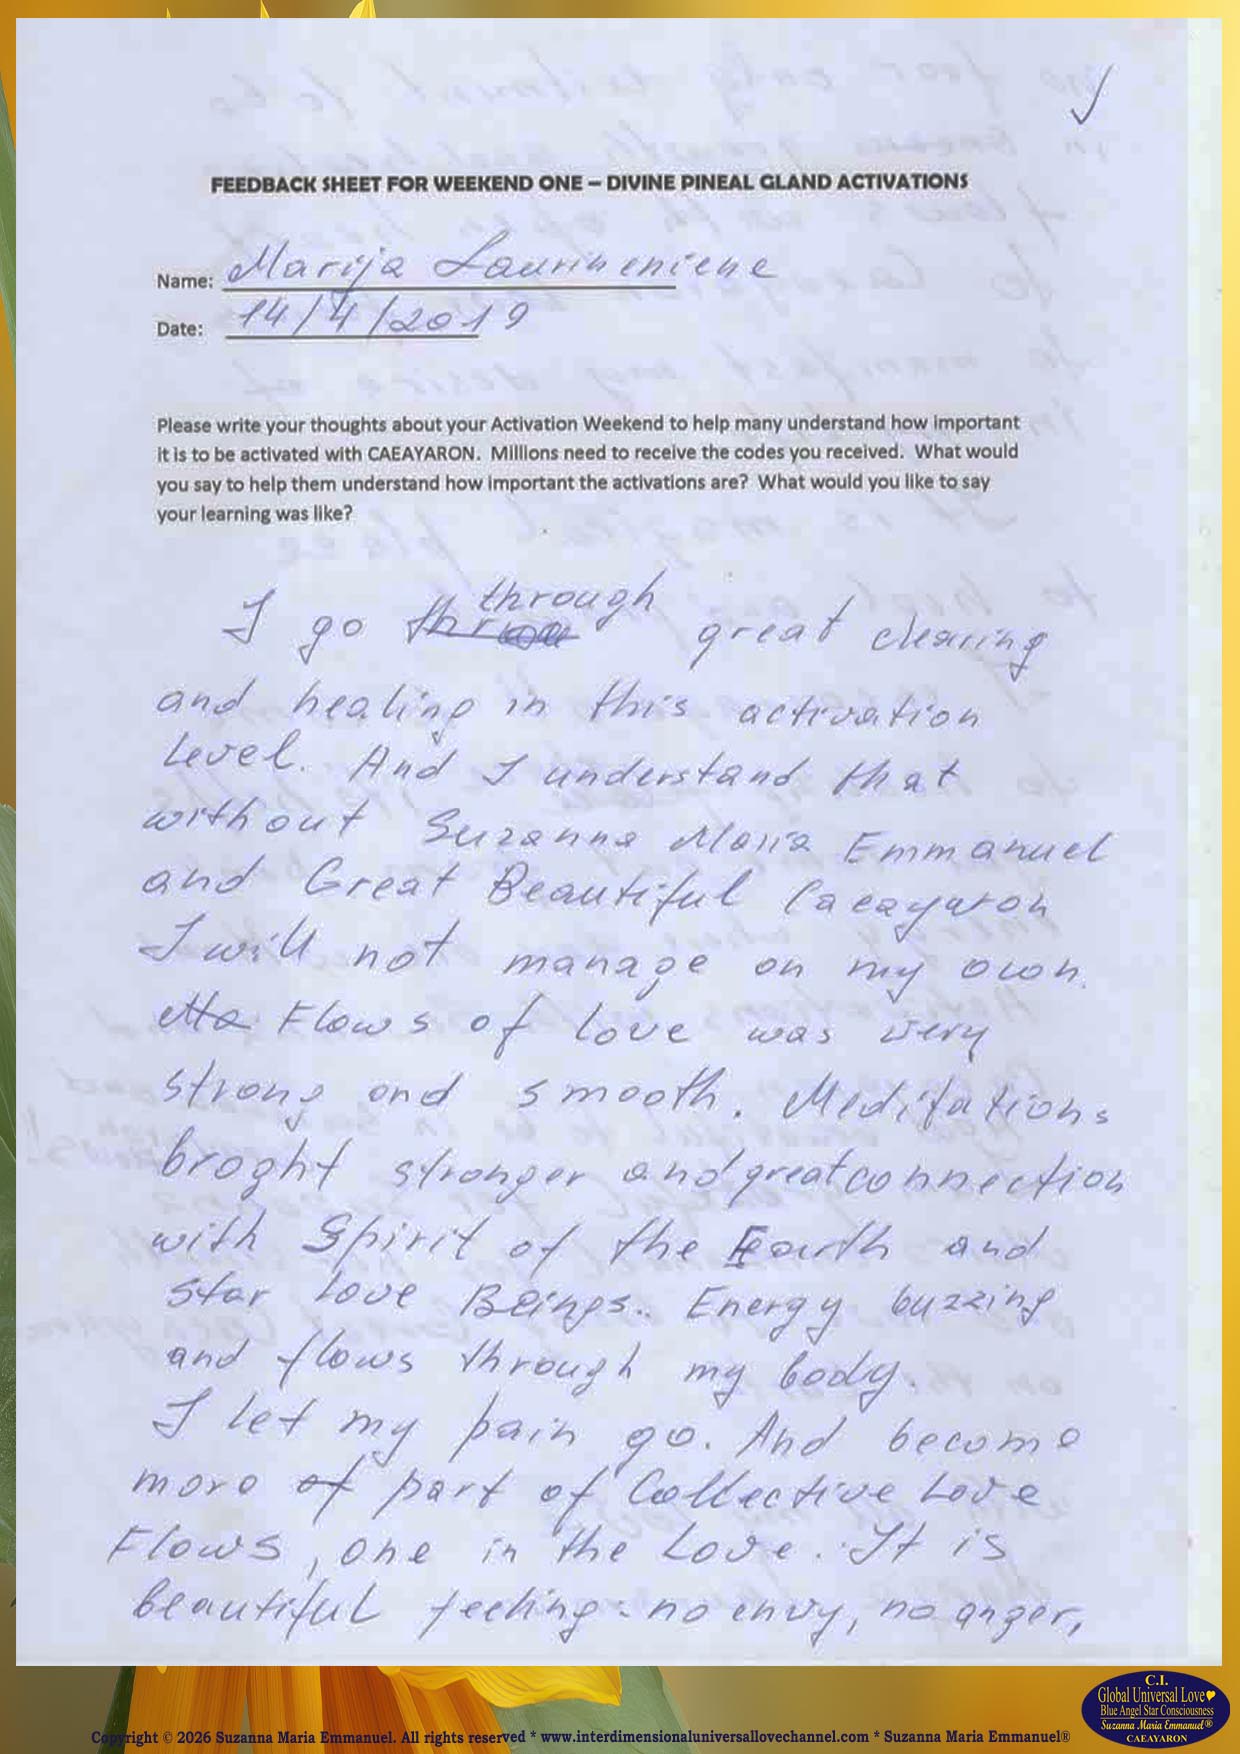 FEEDBACK SHEET FOR WEEKEND ONE – DIVINE PINEAL GLAND ACTIVATIONS
Name: Marija Laurineniene
Date: 14/4/2019
Please write your thoughts about your Activation Weekend to help many understand how important
it is to be activated with CAEAYARON. Millions need to receive the codes you received. What would
you say to help them understand how important the activations are? What would you like to say
your learning was like?
I go through great clearing
and healing in this activation
Level. And I understand that
without Suzanna Maria Emmanuel
and Great Beautiful Caeayaron
I will not manage on my own.
Flows of love was very
strong and smooth. Meditations
broght stronger and great connection
with Spirit of the Earth and
Star Love Beings.. Energy buzzing
and flows through my body.
I let my pain go. And become
more part of Collective Love
Flows, one in the Love. It is
beautiful feeling: no envy, no anger,
C.I.
Global Universal Love
Blue Angel Star Consciousness
Suzanna Maria Emmanuel®
CAEAYARON
Copyright © 2026 Suzanna Maria Emmanuel. All rights reserved * www.interdimensionaluniversallovechannel.com * Suzanna Maria Emmanuel®